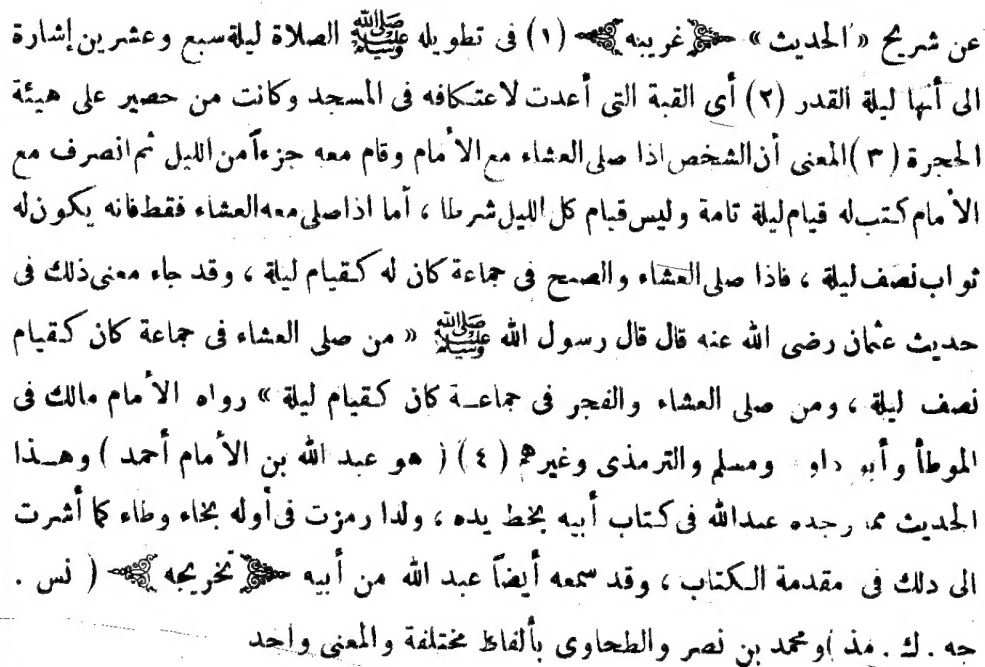 عن شريح «الحديث» ﴿غريبه﴾ (١) فى تطويله ﷺ الصلاة ليلة سبع وعشرين إشارة
الى أنها ليلة القدر (٢) أى القبة التى أعدت لاعتكافه فى المسجد وكانت من حصير على هيئة
الحجرة (٣) المعنى أن الشخص اذا صلى العشاء مع الأمام وقام معه جزءاً من الليل ثم انصرف مع
الأمام كتب له قيام ليلة تامة وليس قيام كل الليل شرطا ، أما اذا صلى معه العشاء فقط فانه يكون له
ثواب نصف ليلة ، فاذا صلى العشاء والصبح فى جماعة كان له كقيام ليلة ، وقد جاء معنى ذلك فى
حديث عثمان رضى الله عنه قال قال رسول الله ﷺ « من صلى العشاء فى جماعة كان كقيام
نصف ليلة ، ومن صلى العشاء والفجر فى جماعة كان كقيام ليلة » رواه الأمام مالك فى
الموطأ وأبو داو ومسلم والترمذى وغيرهم (٤) ( هو عبد الله بن الأمام أحمد ) وهذا
الحديث مما وجده عبدالله فى كتاب أبيه بخط يده ، ولذا رمزت فى أوله بخاء وطاء كما أشرت
الى ذلك فى مقدمة الكتاب ، وقد سمعه أيضاً عبد الله من أبيه ﴿تخريجه﴾ ( نس .
جه . ك . مذ )ومحمد بن نصر والطحاوى بألفاظ مختلفة والمعنى واحد